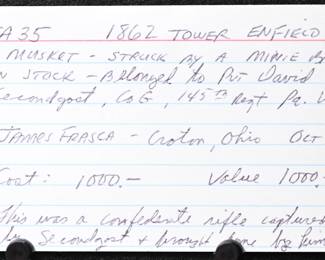 A 35 1862 TOWER ENFIELD
MUSKET - STRUCK BY A MINIE B
N STOCK - Belonged to Pvt David
Secondgost, Co G, 145th Regt Pa. V
JAMES FRASCA - Croton, Ohio Oct
Cost: 1000.- Value 1000.
This was a confederate rifle captured
by Secondgost & brought home by him